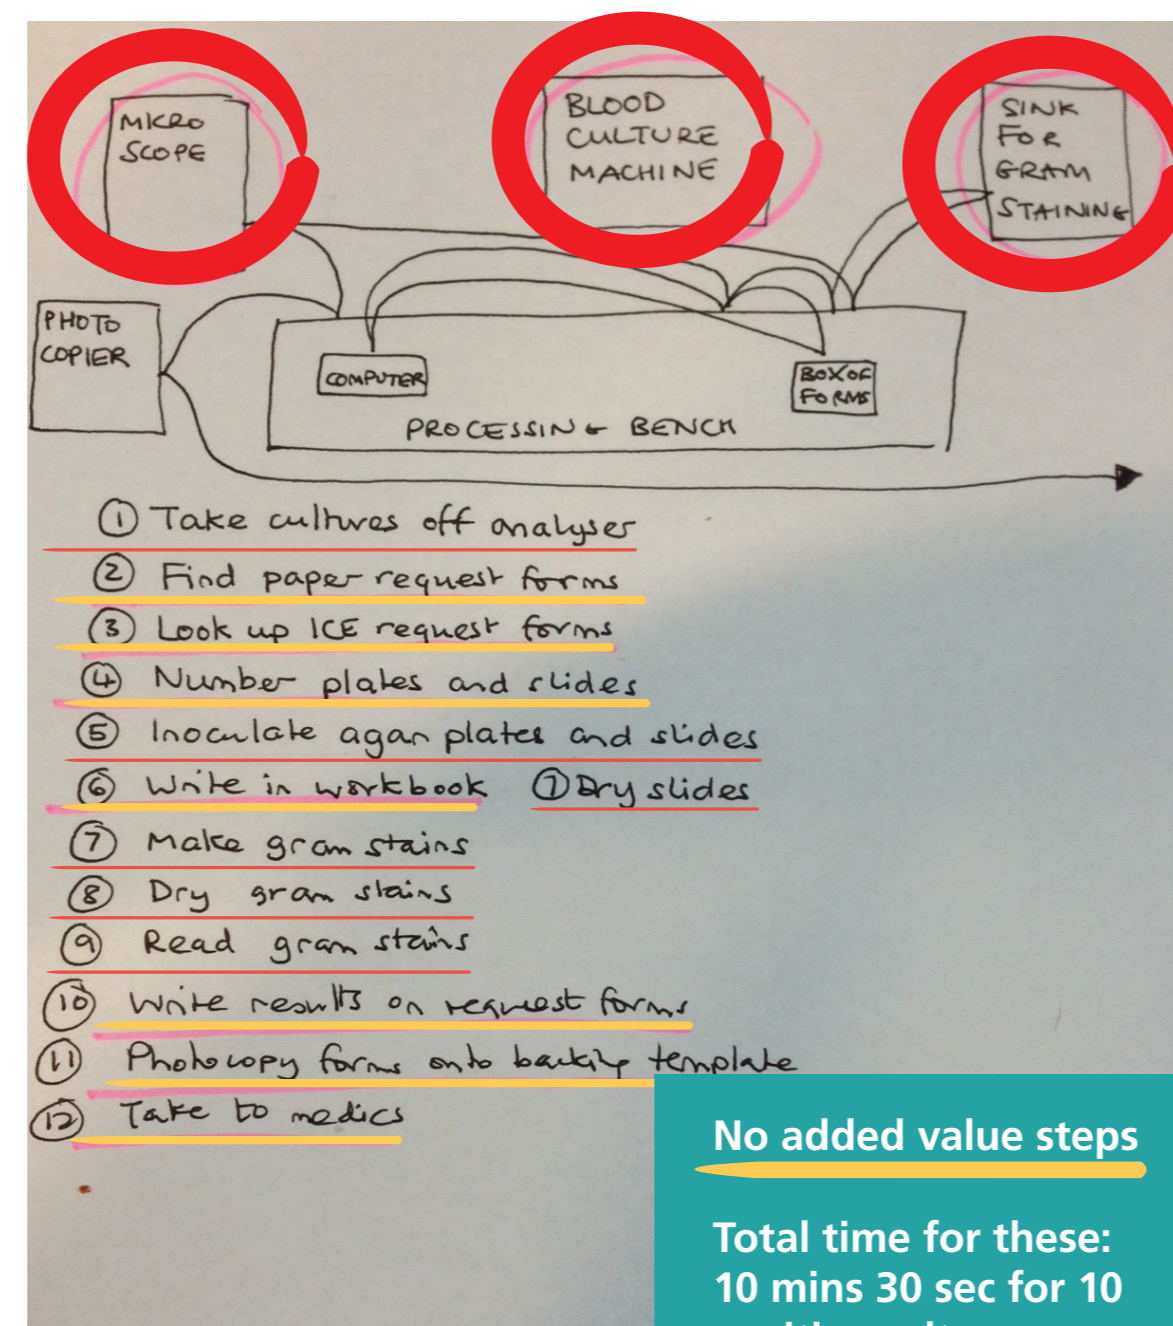 MICRO
SCOPE
BLOOD
CULTURE
MACHINE
SINK
FOR
GRAM
STAINING
PHOTO
COPIER
COMPUTER
BOX OF
FORMS
PROCESSING BENCH
① Take cultures off analyser
② Find paper request forms
③ Look up ICE request forms
④ Number plates and slides
⑤ Inoculate agar plates and slides
⑥ Write in workbook ⑦ Dry slides
⑦ Make gram stains
⑧ Dry gram stains
⑨ Read gram stains
⑩ Write results on request forms
⑪ Photocopy forms onto backing template
⑫ Take to medics
No added value steps
Total time for these:
10 mins 30 sec for 10